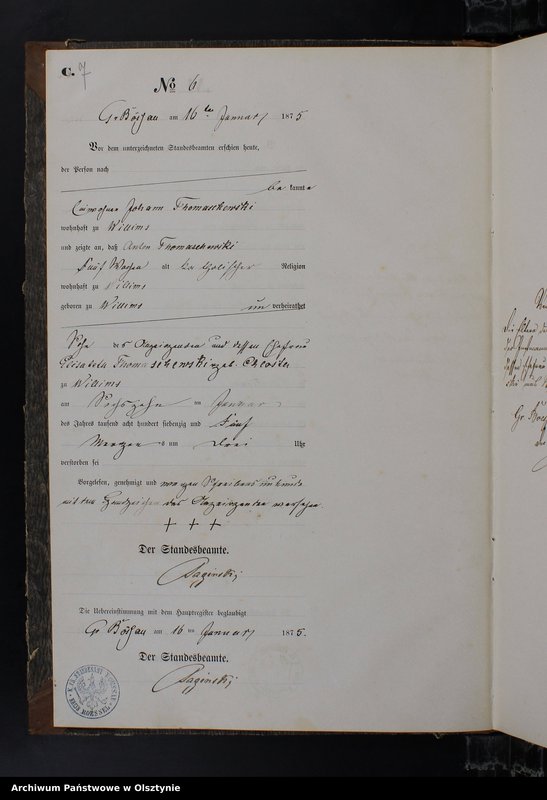 C. 7
No 6
Gr Bößau am 16 ten Januar 1875
Vor dem unterzeichneten Standesbeamten erschien heute,
der Person nach
be kannte
Einwohner Johann Thomaschewski
wohnhaft zu Willims
und zeigte an, daß Anton Thomaschewski
fünf Wochen alt katholischer Religion
wohnhaft zu Willims
geboren zu Willims un verheirathet
Sohn des Anzeigenden und dessen Ehefrau
Elisabeth Thomaschewski geb.
zu Willims
am Sechszehn ten Januar
des Jahres tausend acht hundert siebenzig und fünf
Morgen s um drei Uhr
verstorben sei
Vorgelesen, genehmigt und wegen Schreibensunkunde
mit dem Handzeichen des Anzeigenden versehen
+ + +
Der Standesbeamte.
Die Uebereinstimmung mit dem Hauptregister beglaubigt
Gr Bößau am 16 ten Januar 1875.
Der Standesbeamte.
Archiwum Państwowe w Olsztynie